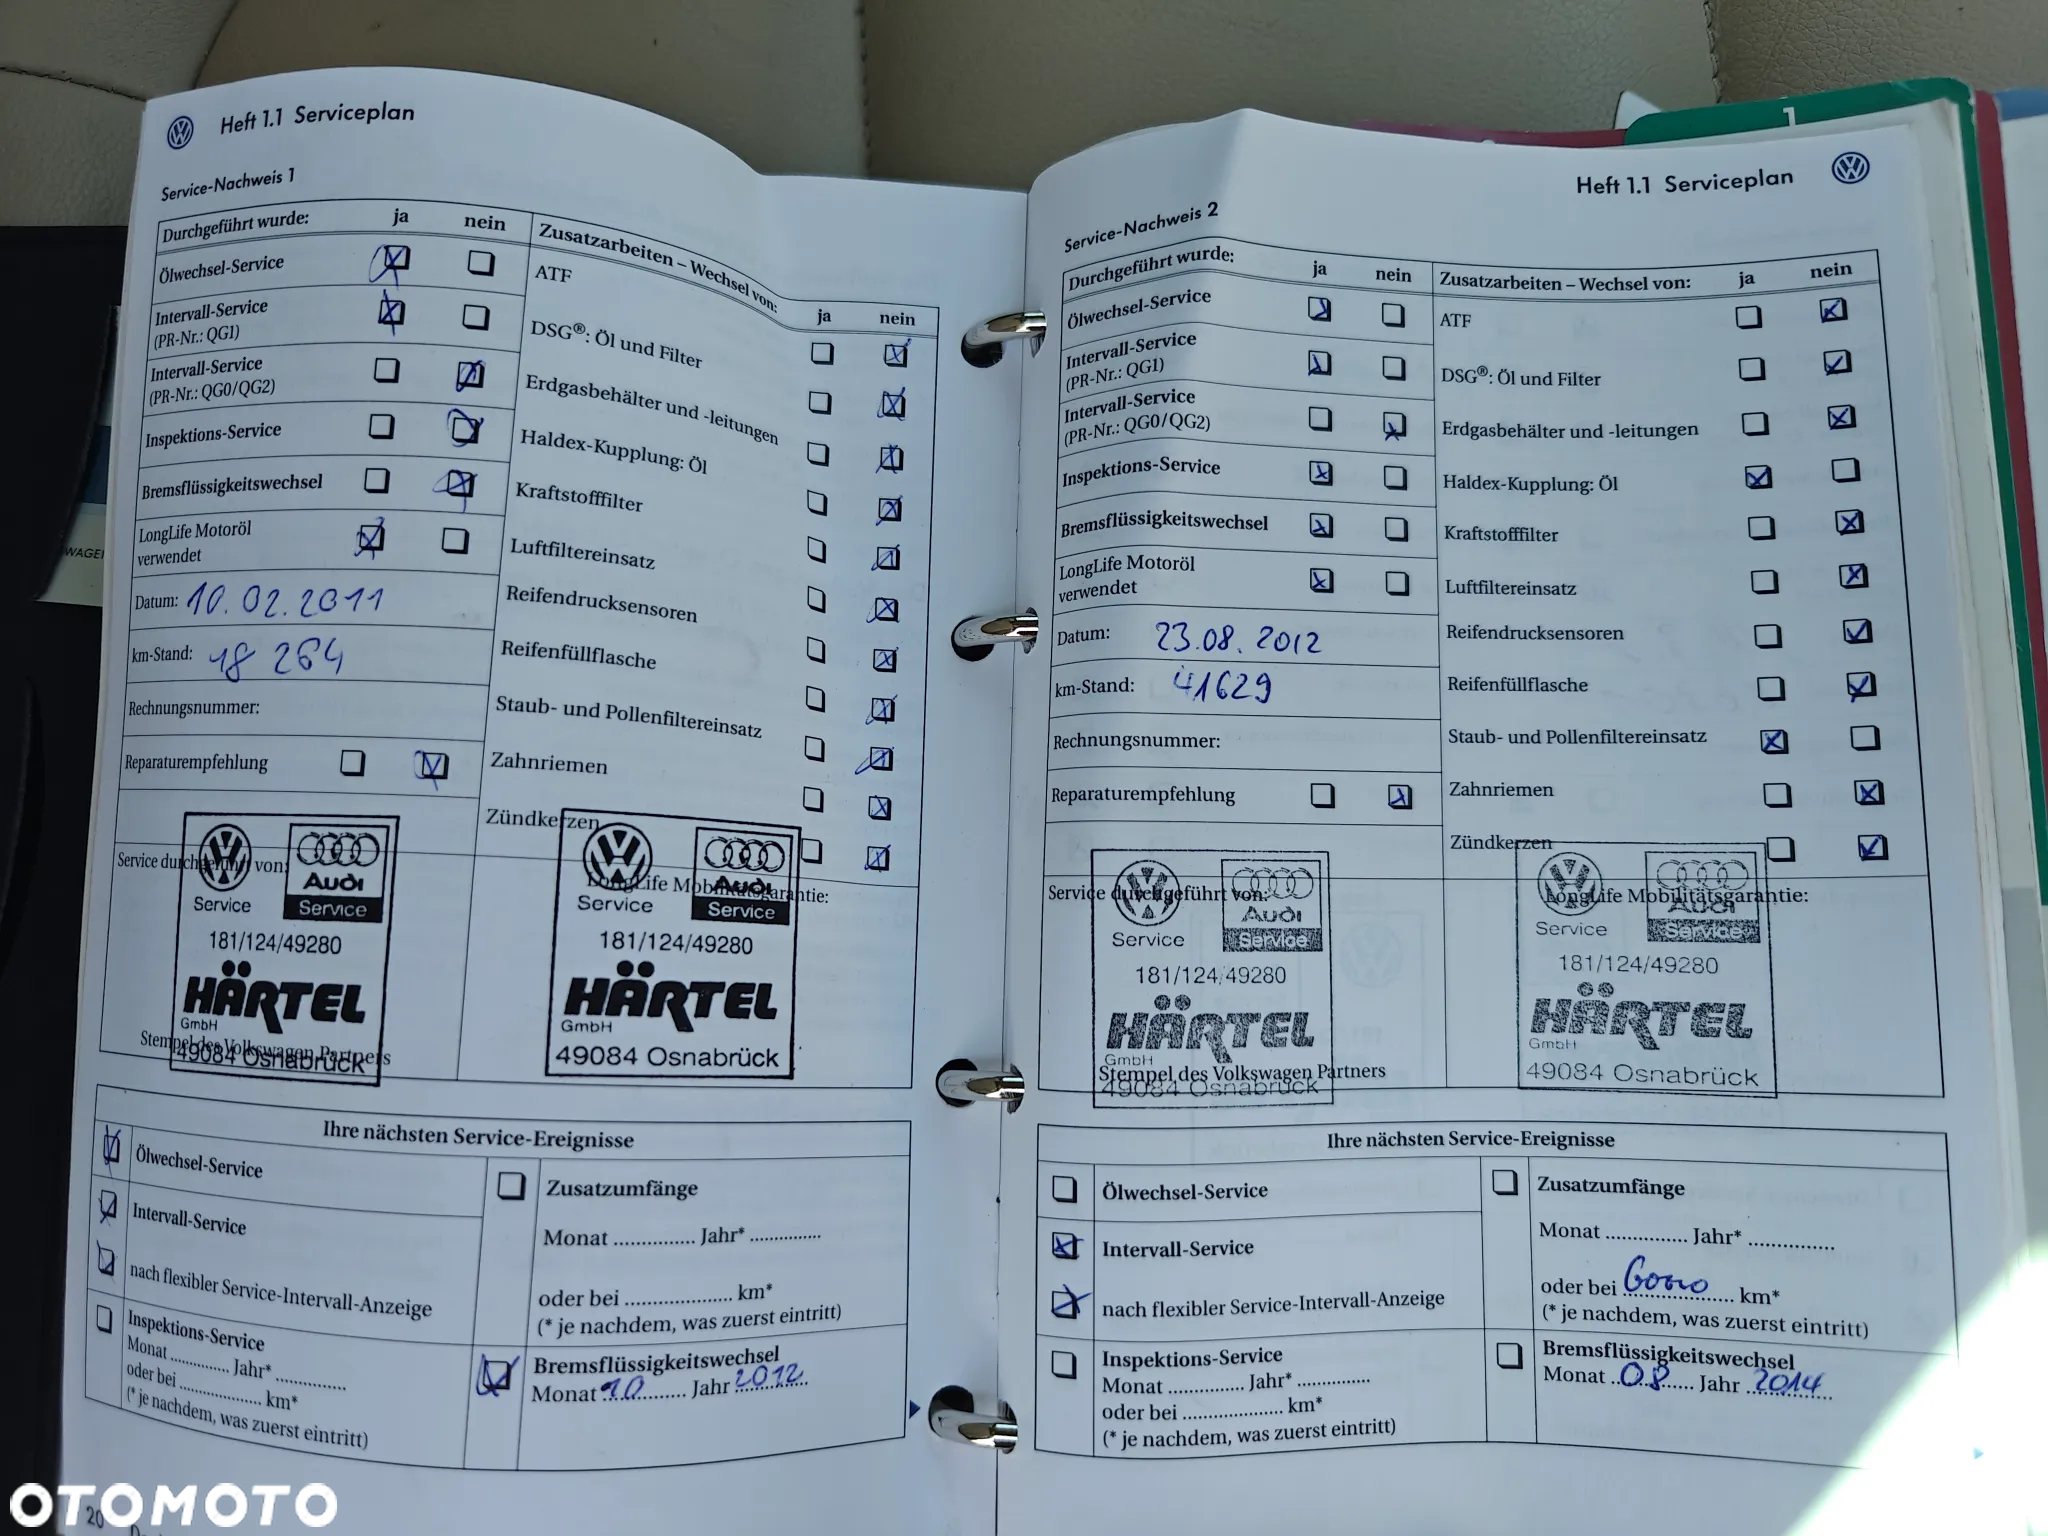 Heft 1.1 Serviceplan
Service-Nachweis 1
Durchgeführt wurde: ja nein
Ölwechsel-Service
Intervall-Service
(PR-Nr.: QG1)
Intervall-Service
(PR-Nr.: QG0/QG2)
Inspektions-Service
Bremsflüssigkeitswechsel
LongLife Motoröl
verwendet
Datum: 10.02.2011
km-Stand: 18 264
Rechnungsnummer:
Reparaturempfehlung
Zusatzarbeiten – Wechsel von: ja nein
ATF
DSG®: Öl und Filter
Erdgasbehälter und -leitungen
Haldex-Kupplung: Öl
Kraftstofffilter
Luftfiltereinsatz
Reifendrucksensoren
Reifenfüllflasche
Staub- und Pollenfiltereinsatz
Zahnriemen
Zündkerzen
Service durchgeführt von:
Service
Audi
Service
181/124/49280
HÄRTEL
GmbH
49084 Osnabrück
Stempel des Volkswagen Partners
LongLife Mobilitätsgarantie:
Service
Audi
Service
181/124/49280
HÄRTEL
GmbH
49084 Osnabrück
Ihre nächsten Service-Ereignisse
Ölwechsel-Service
Intervall-Service
nach flexibler Service-Intervall-Anzeige
Inspektions-Service
Monat .............. Jahr* ................
oder bei .................... km*
(* je nachdem, was zuerst eintritt)
Zusatzumfänge
Monat ............... Jahr* ..............
oder bei .................... km*
(* je nachdem, was zuerst eintritt)
Bremsflüssigkeitswechsel
Monat 10 Jahr 2012
20
Heft 1.1 Serviceplan
Service-Nachweis 2
Durchgeführt wurde: ja nein
Ölwechsel-Service
Intervall-Service
(PR-Nr.: QG1)
Intervall-Service
(PR-Nr.: QG0/QG2)
Inspektions-Service
Bremsflüssigkeitswechsel
LongLife Motoröl
verwendet
Datum: 23.08.2012
km-Stand: 41629
Rechnungsnummer:
Reparaturempfehlung
Zusatzarbeiten – Wechsel von: ja nein
ATF
DSG®: Öl und Filter
Erdgasbehälter und -leitungen
Haldex-Kupplung: Öl
Kraftstofffilter
Luftfiltereinsatz
Reifendrucksensoren
Reifenfüllflasche
Staub- und Pollenfiltereinsatz
Zahnriemen
Zündkerzen
Service durchgeführt von:
Service
Audi
Service
181/124/49280
HÄRTEL
GmbH
49084 Osnabrück
Stempel des Volkswagen Partners
LongLife Mobilitätsgarantie:
Service
Audi
Service
181/124/49280
HÄRTEL
GmbH
49084 Osnabrück
Ihre nächsten Service-Ereignisse
Ölwechsel-Service
Intervall-Service
nach flexibler Service-Intervall-Anzeige
Inspektions-Service
Monat .............. Jahr* ..............
oder bei .................... km*
(* je nachdem, was zuerst eintritt)
Zusatzumfänge
Monat ............... Jahr* ................
oder bei 60000 km*
(* je nachdem, was zuerst eintritt)
Bremsflüssigkeitswechsel
Monat 08 Jahr 2014
1
OTOMOTO